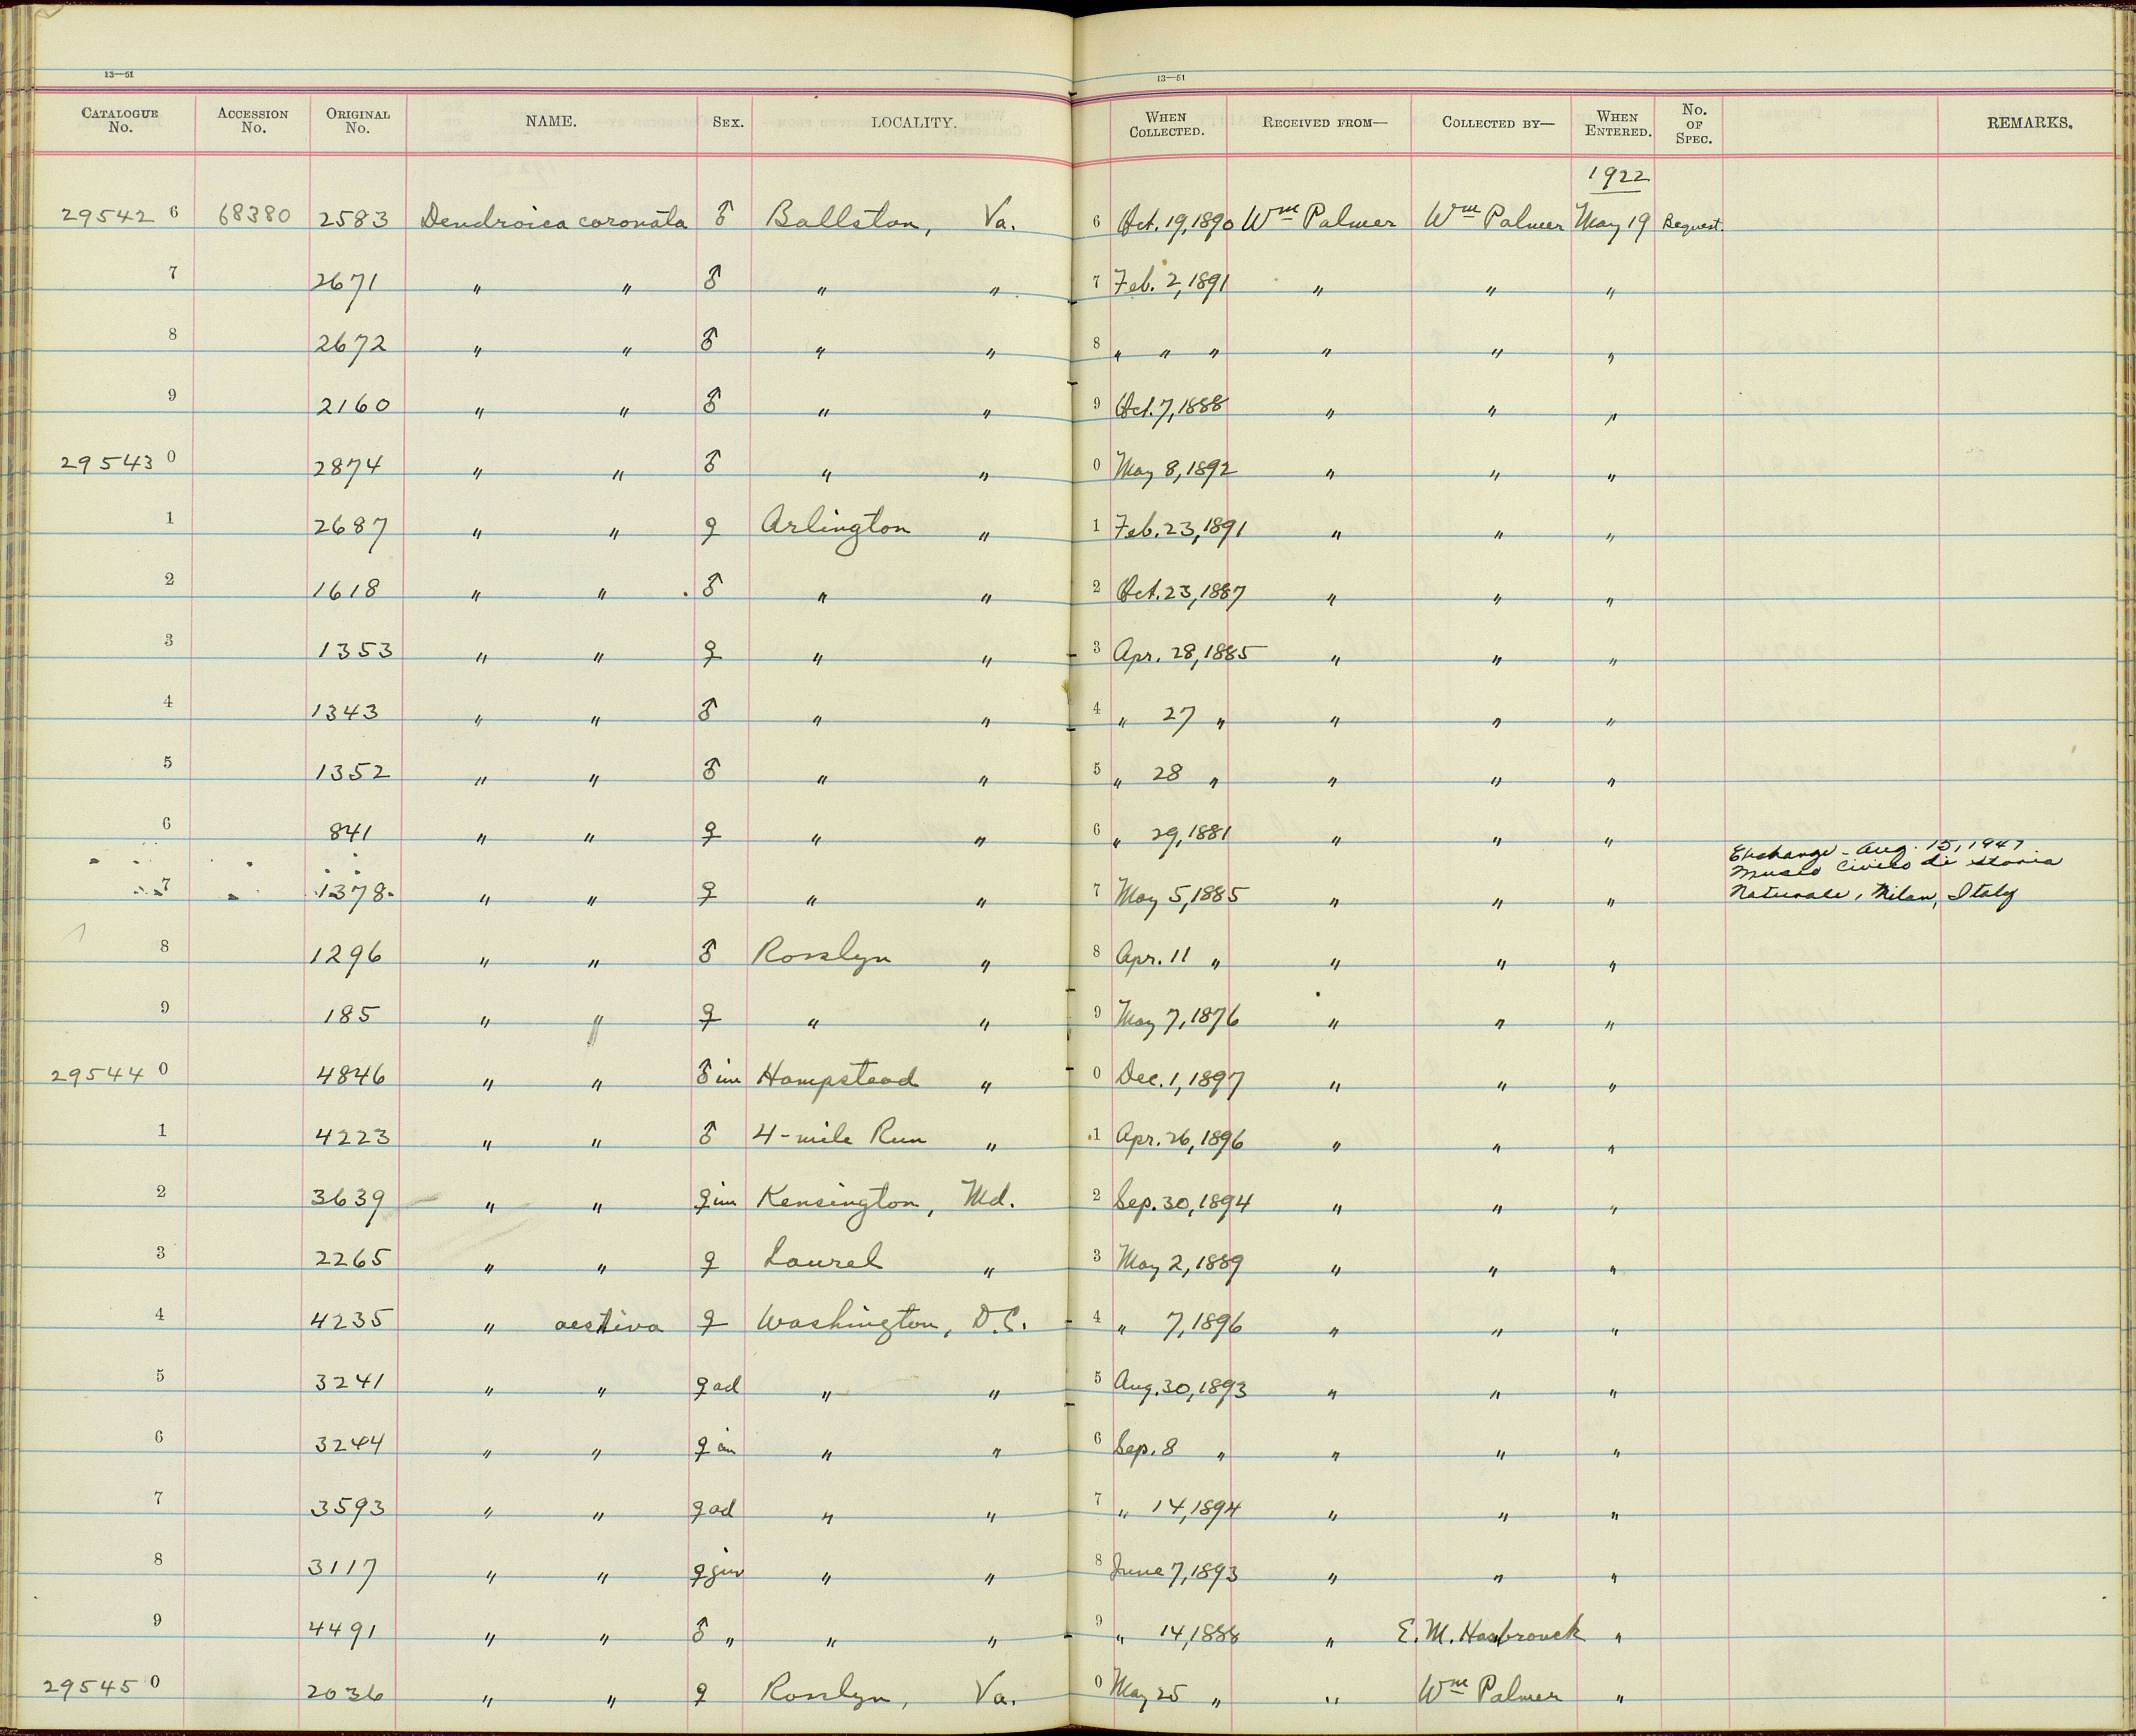 13—51 13—51
CATALOGUE No. ACCESSION No. ORIGINAL No. NAME. SEX. LOCALITY. WHEN COLLECTED. RECEIVED FROM— COLLECTED BY— WHEN ENTERED. No. OF SPEC. REMARKS.
1922
29542 6 68380 2583 Dendroica coronata ♂ Ballston, Va. 6 Oct. 19, 1890 Wm Palmer Wm Palmer May 19 Bequest.
7 2671 " " ♂ " " 7 Feb. 2, 1891 " " "
8 2672 " " ♂ " " 8 " " " " " "
9 2160 " " ♂ " " 9 Oct. 7, 1888 " " "
29543 0 2874 " " ♂ " " 0 May 8, 1892 " " "
1 2687 " " ♀ Arlington " 1 Feb. 23, 1891 " " "
2 1618 " " ♂ " " 2 Oct. 23, 1887 " " "
3 1353 " " ♀ " " 3 Apr. 28, 1885 " " "
4 1343 " " ♂ " " 4 " 27 " " " "
5 1352 " " ♂ " " 5 " 28 " " " "
6 841 " " ♀ " " 6 " 29, 1881 " " "
Exchange - Aug. 15, 1947
Museo Civico di Storia
7 1378 " " ♀ " " 7 May 5, 1885 " " " Naturale, Milan, Italy
8 1296 " " ♂ Rosslyn " 8 Apr. 11 " " " "
9 185 " " ♀ " " 9 May 7, 1876 " " "
29544 0 4846 " " ♂ im Hampstead " 0 Dec. 1, 1897 " " "
1 4223 " " ♂ 4-mile Run " 1 Apr. 26, 1896 " " "
2 3639 " " ♀ im Kensington, Md. 2 Sep. 30, 1894 " " "
3 2265 " " ♀ Laurel " 3 May 2, 1889 " " "
4 4235 " aestiva ♀ Washington, D.C. 4 " 7, 1896 " " "
5 3241 " " ♀ ad " " 5 Aug. 30, 1893 " " "
6 3244 " " ♀ im " " 6 Sep. 8 " " " "
7 3593 " " ♀ ad " " 7 " 14, 1894 " " "
8 3117 " " ♀ juv " " 8 June 7, 1893 " " "
9 4491 " " ♂ " " " 9 " 14, 1888 " E. M. Hasbrouck "
29545 0 2036 " " ♀ Rosslyn, Va. 0 May 25 " " Wm Palmer "